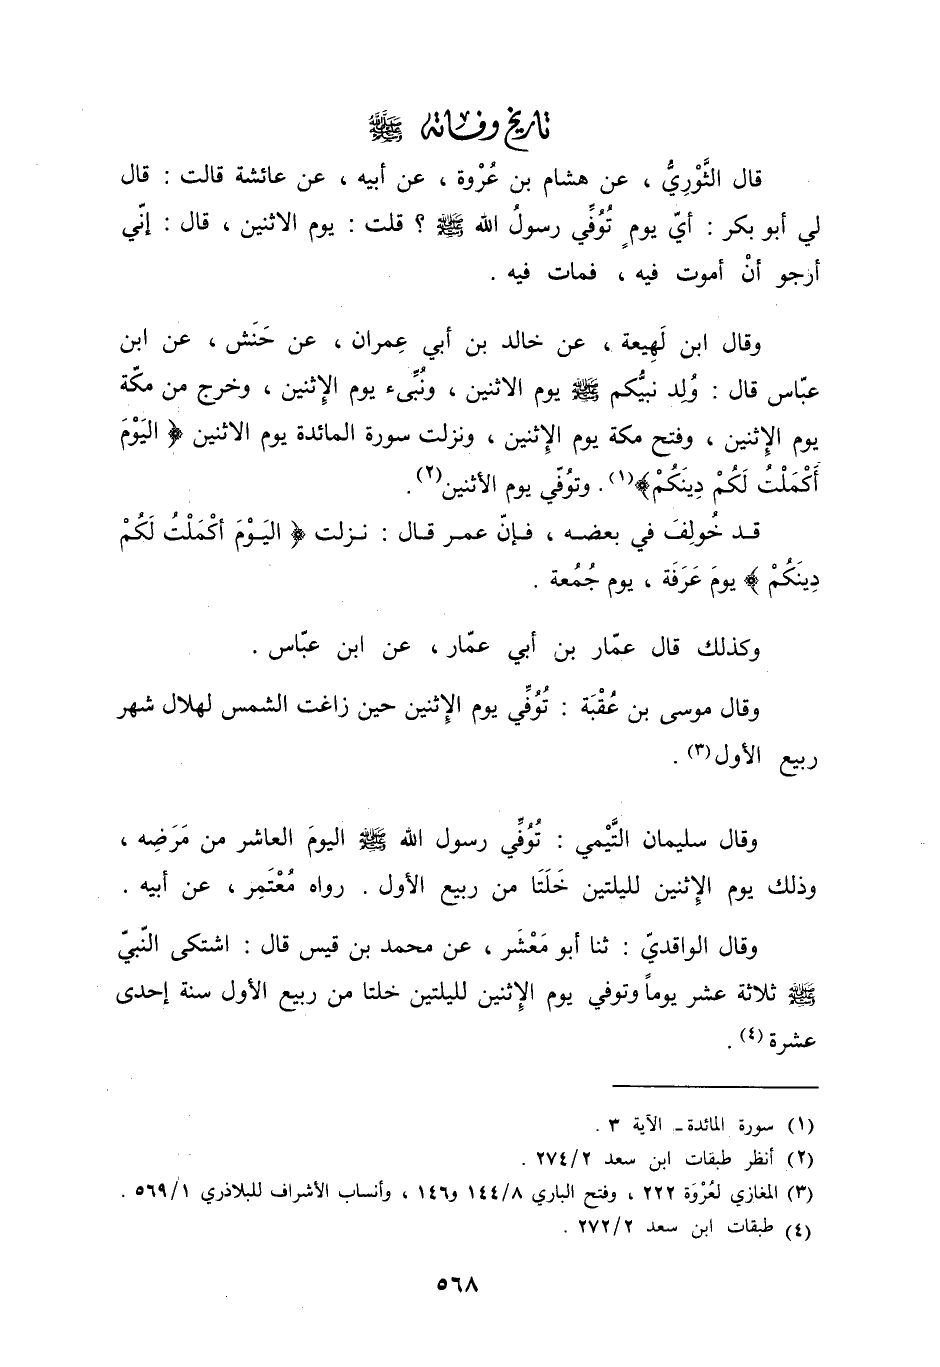 تاريخ وفاته ﷺ
قال الثَّوْرِيُّ ، عن هشام بن عُرْوة ، عن أبيه ، عن عائشة قالت : قال
لي أبو بكر : أيّ يومٍ تُوُفِّي رسولُ الله ﷺ ؟ قلت : يوم الاثنين ، قال : إنّي
أرجو أنْ أموت فيه ، فمات فيه .
وقال ابن لَهِيعة ، عن خالد بن أبي عِمران ، عن حَنَش ، عن ابن
عبّاس قال : وُلِد نبيُّكم ﷺ يوم الاثنين ، ونُبِّىء يوم الإثنين ، وخرج من مكّة
يوم الإثنين ، وفتح مكة يوم الإثنين ، ونزلت سورة المائدة يوم الاثنين ﴿ اليَوْمَ
أَكْمَلْتُ لَكُمْ دِينَكُمْ﴾(١). وتوُفّي يوم الأثنين(٢).
قد خُولِفَ في بعضه ، فإنّ عمر قال : نزلت ﴿ اليَوْمَ أكْمَلْتُ لَكُمْ
دِينَكُمْ ﴾ يومَ عَرَفَة ، يوم جُمُعة .
وكذلك قال عمّار بن أبي عمّار ، عن ابن عبّاس .
وقال موسى بن عُقْبَة : تُوُفِّي يوم الإثنين حين زاغت الشمس لهلال شهر
ربيع الأول(٣) .
وقال سليمان التَّيْمي : تُوُفِّي رسول الله ﷺ اليومَ العاشر من مَرَضِه ،
وذلك يوم الإثنين لليلتين خَلَتَا من ربيع الأول . رواه مُعْتَمِر ، عن أبيه .
وقال الواقديّ : ثنا أبو مَعْشَر ، عن محمد بن قيس قال : اشتكى النّبيّ
ﷺ ثلاثة عشر يوماً وتوفي يوم الإثنين لليلتين خلتا من ربيع الأول سنة إحدى
عشرة (٤) .
(١) سورة المائدة ـ الآية ٣ .
(٢) أنظر طبقات ابن سعد ٢٧٤/٢ .
(٣) المغازي لعُرْوَة ٢٢٢ ، وفتح الباري ١٤٤/٨ و١٤٦ ، وأنساب الأشراف للبلاذري ٥٦٩/١ .
(٤) طبقات ابن سعد ٢٧٢/٢ .
٥٦٨